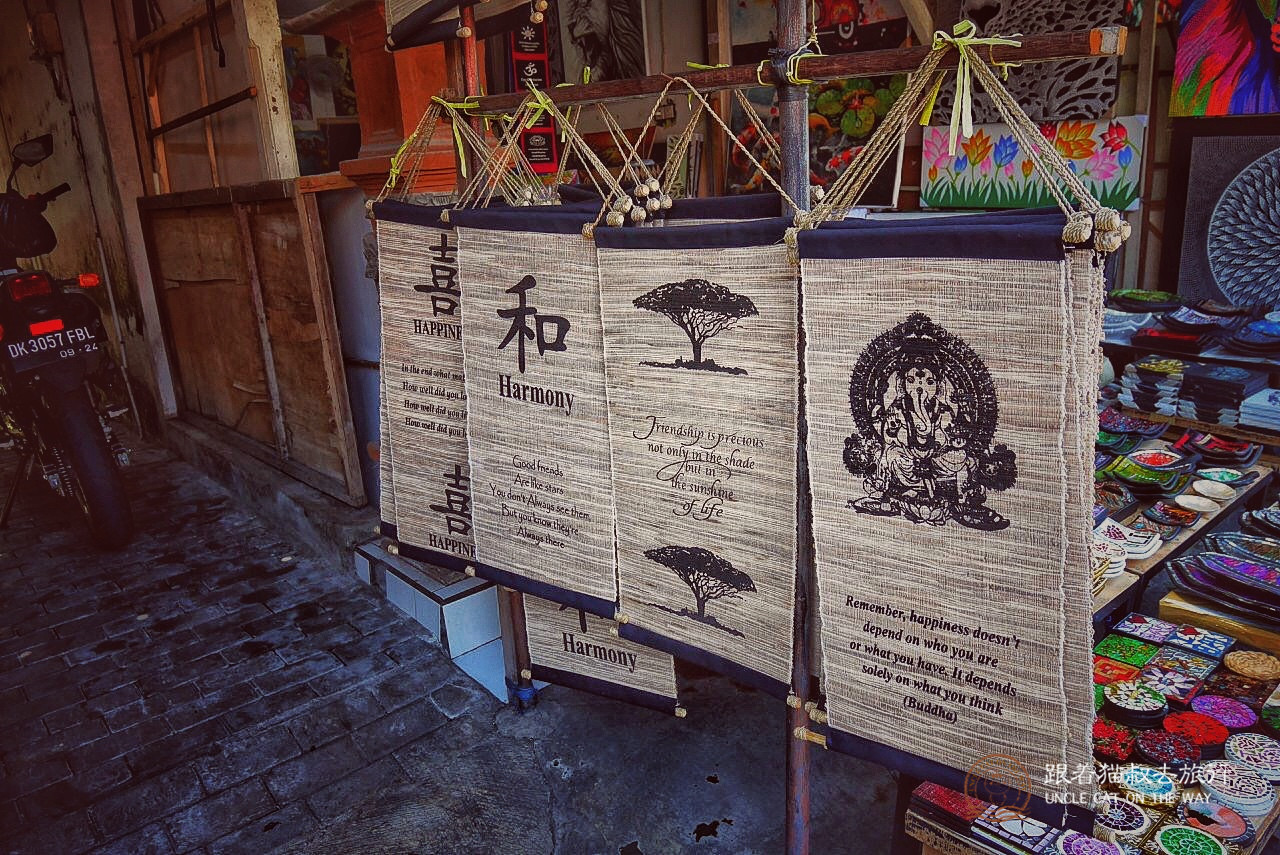 DK 3057 FBL
09·24
喜
HAPPINE
In the end what ma
How well did you l
How well did you l
How well did you l
喜
HAPPINE
和
Harmony
Good friends
Are like stars
You don't Always see them
But you know they're
Always there
Harmony
Friendship is precious
not only in the shade
but in
the sunshine
of life
Remember, happiness doesn't
depend on who you are
or what you have. It depends
solely on what you think
(Buddha)
跟着猫叔去旅行
UNCLE CAT ON THE WAY